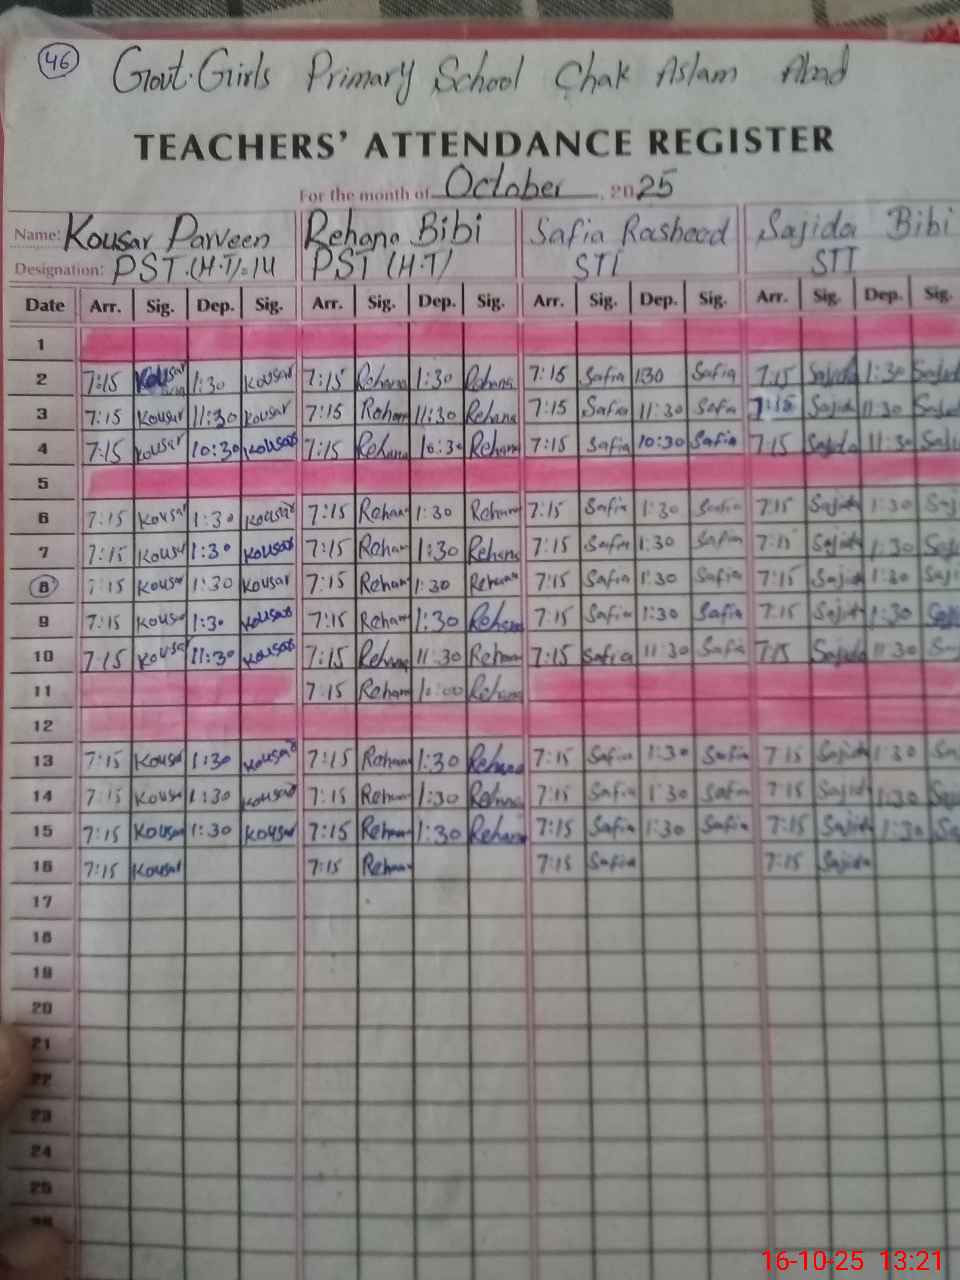 46
Govt. Girls Primary School Chak Aslam Abad
TEACHERS' ATTENDANCE REGISTER
For the month of October, 2025
Name: Kousar Parveen Rehana Bibi Safia Rasheed Sajida Bibi
Designation: PST (H.T)=14 PST (H.T) STI STI
Date Arr. Sig. Dep. Sig. Arr. Sig. Dep. Sig. Arr. Sig. Dep. Sig. Arr. Sig. Dep. Sig.
1
2 7:15 Kousar 1:30 Kousar 7:15 Rehana 1:30 Rehana 7:15 Safia 1:30 Safia 7:15 Sajida 1:30 Sajid
3 7:15 Kousar 11:30 Kousar 7:15 Rehan 11:30 Rehana 7:15 Safia 11:30 Safia 7:15 Sajida 11:30
4 7:15 Kousar 10:30 Kousar 7:15 Rehana 10:30 Rehana 7:15 Safia 10:30 Safia 7:15 Sajida 11:30
5
6 7:15 Kousar 1:30 Kousar 7:15 Rehan 1:30 Rehan 7:15 Safia 1:30 Safia 7:15 Sajida 1:30
7 7:15 Kousar 1:30 Kousar 7:15 Rehan 1:30 Rehana 7:15 Safia 1:30 Safia 7:15 Sajida 1:30
8 7:15 Kousar 1:30 Kousar 7:15 Rehan 1:30 Rehana 7:15 Safia 1:30 Safia 7:15 Sajida 1:30
9 7:15 Kousar 1:30 Kousar 7:15 Rehan 1:30 Rehana 7:15 Safia 1:30 Safia 7:15 Sajida 1:30
10 7:15 Kousar 11:30 Kousar 7:15 Rehana 11:30 Rehana 7:15 Safia 11:30 Safia 7:15 Sajida 11:30
11 7:15 Rehan Rehana
12
13 7:15 Kousar 1:30 Kousar 7:15 Rehana 1:30 Rehana 7:15 Safia 1:30 Safia 7:15 Sajida 1:30 Sa
14 7:15 Kousar 1:30 Kousar 7:15 Rehan 1:30 Rehana 7:15 Safia 1:30 Safia 7:15 Sajida 1:30
15 7:15 Kousar 1:30 Kousar 7:15 Rehan 1:30 Rehana 7:15 Safia 1:30 Safia 7:15 Sajida 1:30 Sa
16 7:15 Kousar 7:15 Rehan 7:15 Safia 7:15 Sajida
17
18
19
20
21
22
23
24
25
16-10-25 13:21